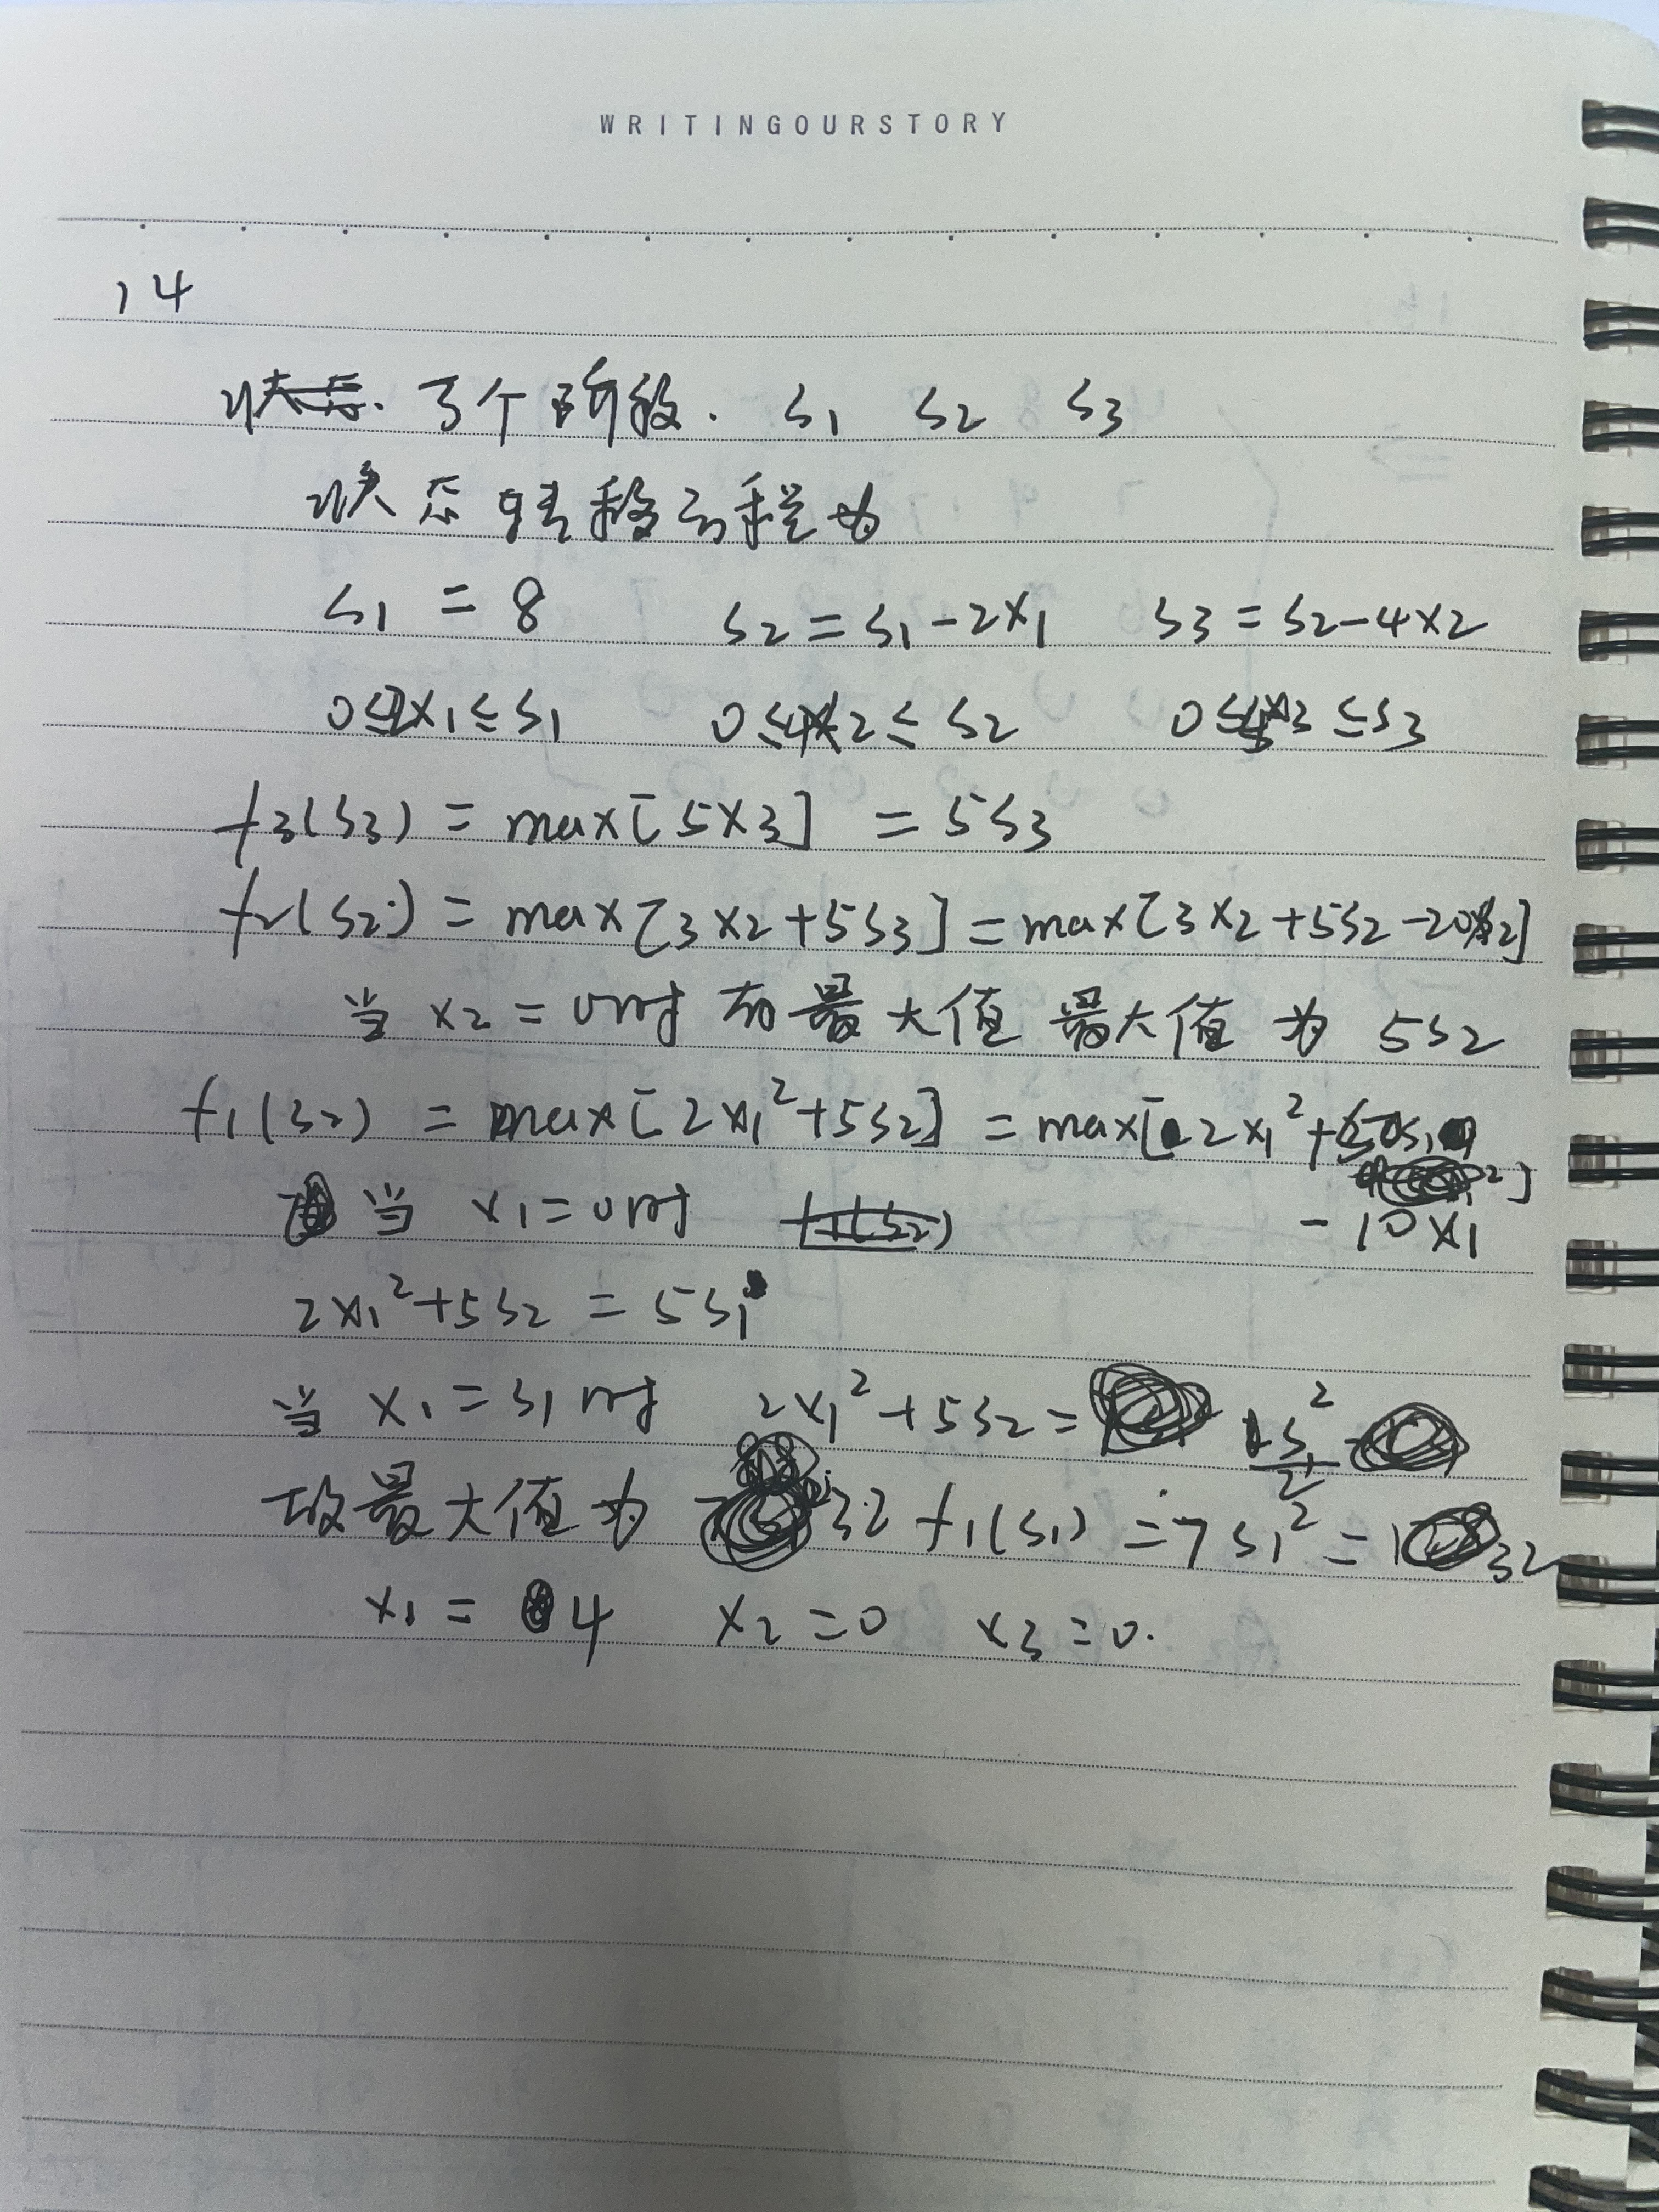 WRITINGOURSTORY
14
3个阶段. S1 S2 S3
状态转移方程为
S1 = 8 S2 = S1 - 2x1 S3 = S2 - 4x2
0≤2x1≤S1 0≤4x2≤S2 0≤x3≤S3
f3(S3) = max[5x3] = 5S3
f2(S2) = max[3x2+5S3] = max[3x2+5S2-20x2]
当 x2=0时 有最大值 最大值为 5S2
f1(S2) = max[2x1²+5S2] = max[2x1²+5S1
-10x1]
当 x1=0时
2x1²+5S2 = 5S1
当 x1=S1时 2x1²+5S2 = S1²/2
故最大值为 32 f1(S1) = 7S1² = 32
x1 = 4 x2=0 x3=0.